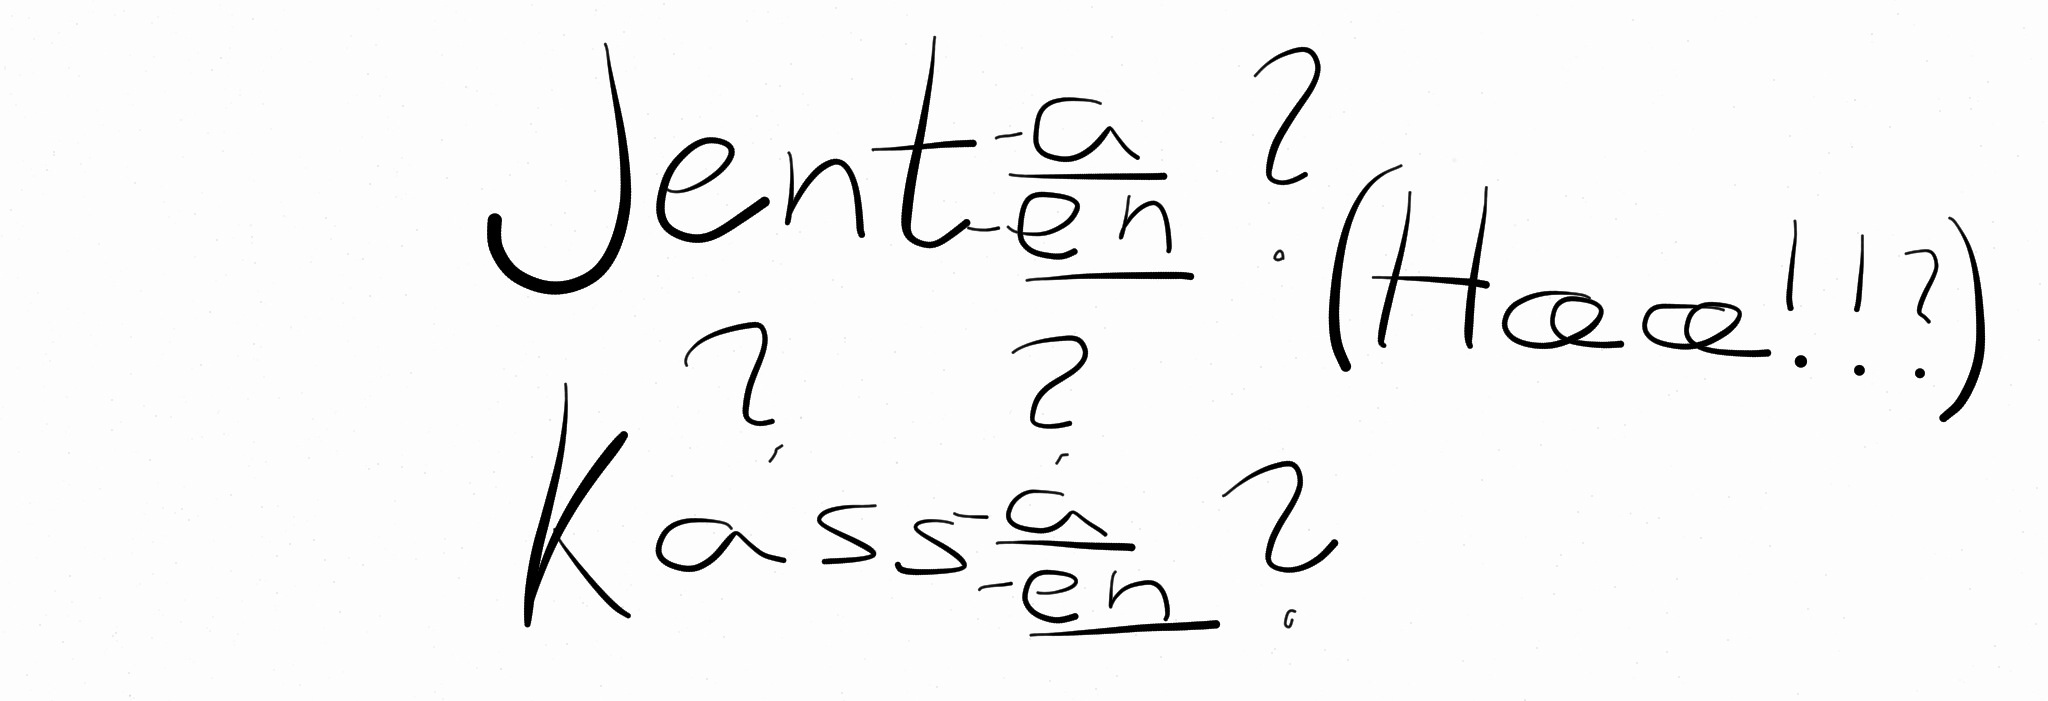 Jent-a ?
-en
(Hææ!!?)
? ?
Kass-a ?
-en